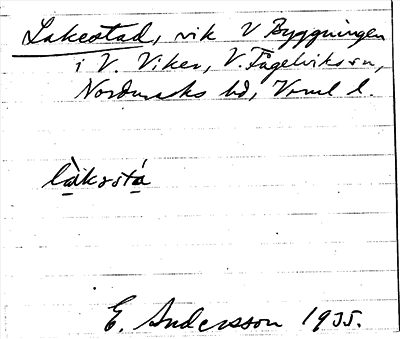 Lakestad, vik V Byggningen
i V. Viker, V. Fågelviks sn,
Nordmarks hd, Vrml l.
làkstá
E. Andersson 1935.